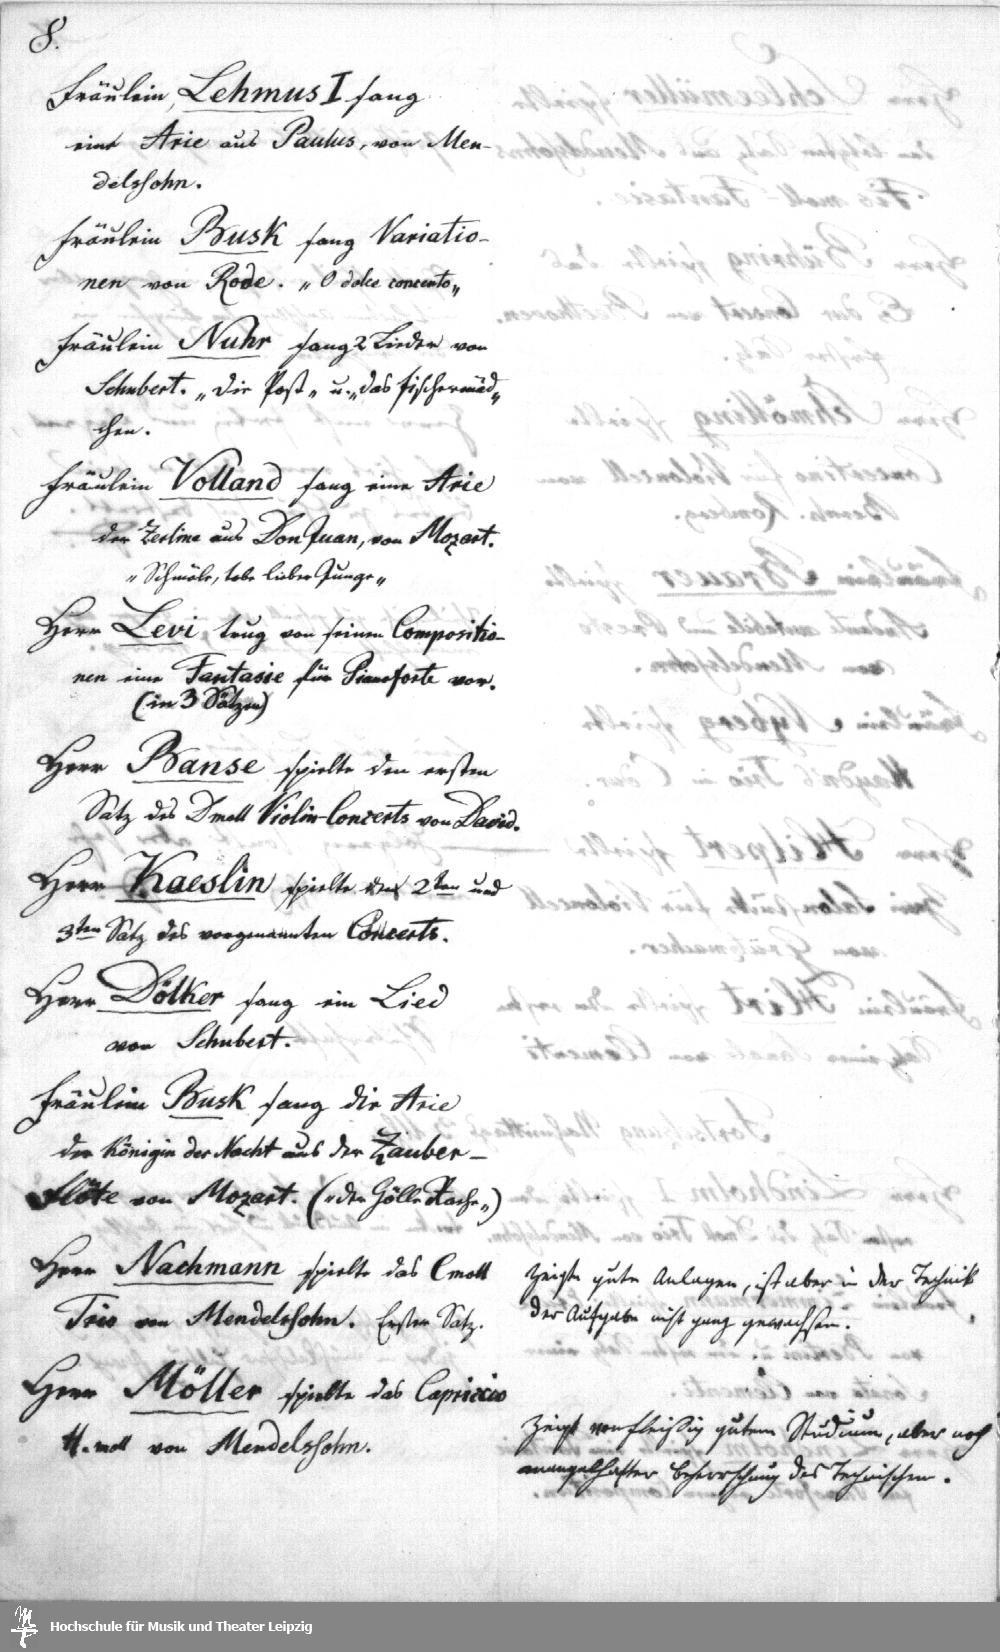 8.
Fräulein Lehmus I sang
eine Arie aus Paulus, von Men-
delssohn.
Fräulein Busk sang Variatio-
nen von Rode. „O dolce concento„
Fräulein Nuhr sang 2 Lieder von
Schubert. „Die Post„ u. „das Fischermäd„
chen.
Fräulein Volland sang eine Arie
der Zerline aus Don Juan, von Mozart.
„Schmäle, tobe lieber Junge„
Herr Levi trug von seinen Compositio-
nen eine Fantasie für Pianoforte vor.
(in 3 Sätzen)
Herr Banse spielte den ersten
Satz des Dmoll Violin-Concerts von David.
Herr Kaeslin spielte den 2ten und
3ten Satz des vorgenannten Concerts.
Herr Dölker sang ein Lied
von Schubert.
Fräulein Busk sang die Arie
der Königin der Nacht aus der Zauber-
flöte von Mozart. („der Hölle Rache„)
Herr Nachmann spielte das Cmoll
Trio von Mendelssohn. Erster Satz.
Zeigte gute Anlagen, ist aber in der Technik
der Aufgabe nicht ganz gewachsen.
Herr Möller spielte das Capriccio
H.moll von Mendelssohn.
Zeigt von fleißig gutem Studium, aber noch
mangelhafter Beherrschung des Technischen.
Hochschule für Musik und Theater Leipzig